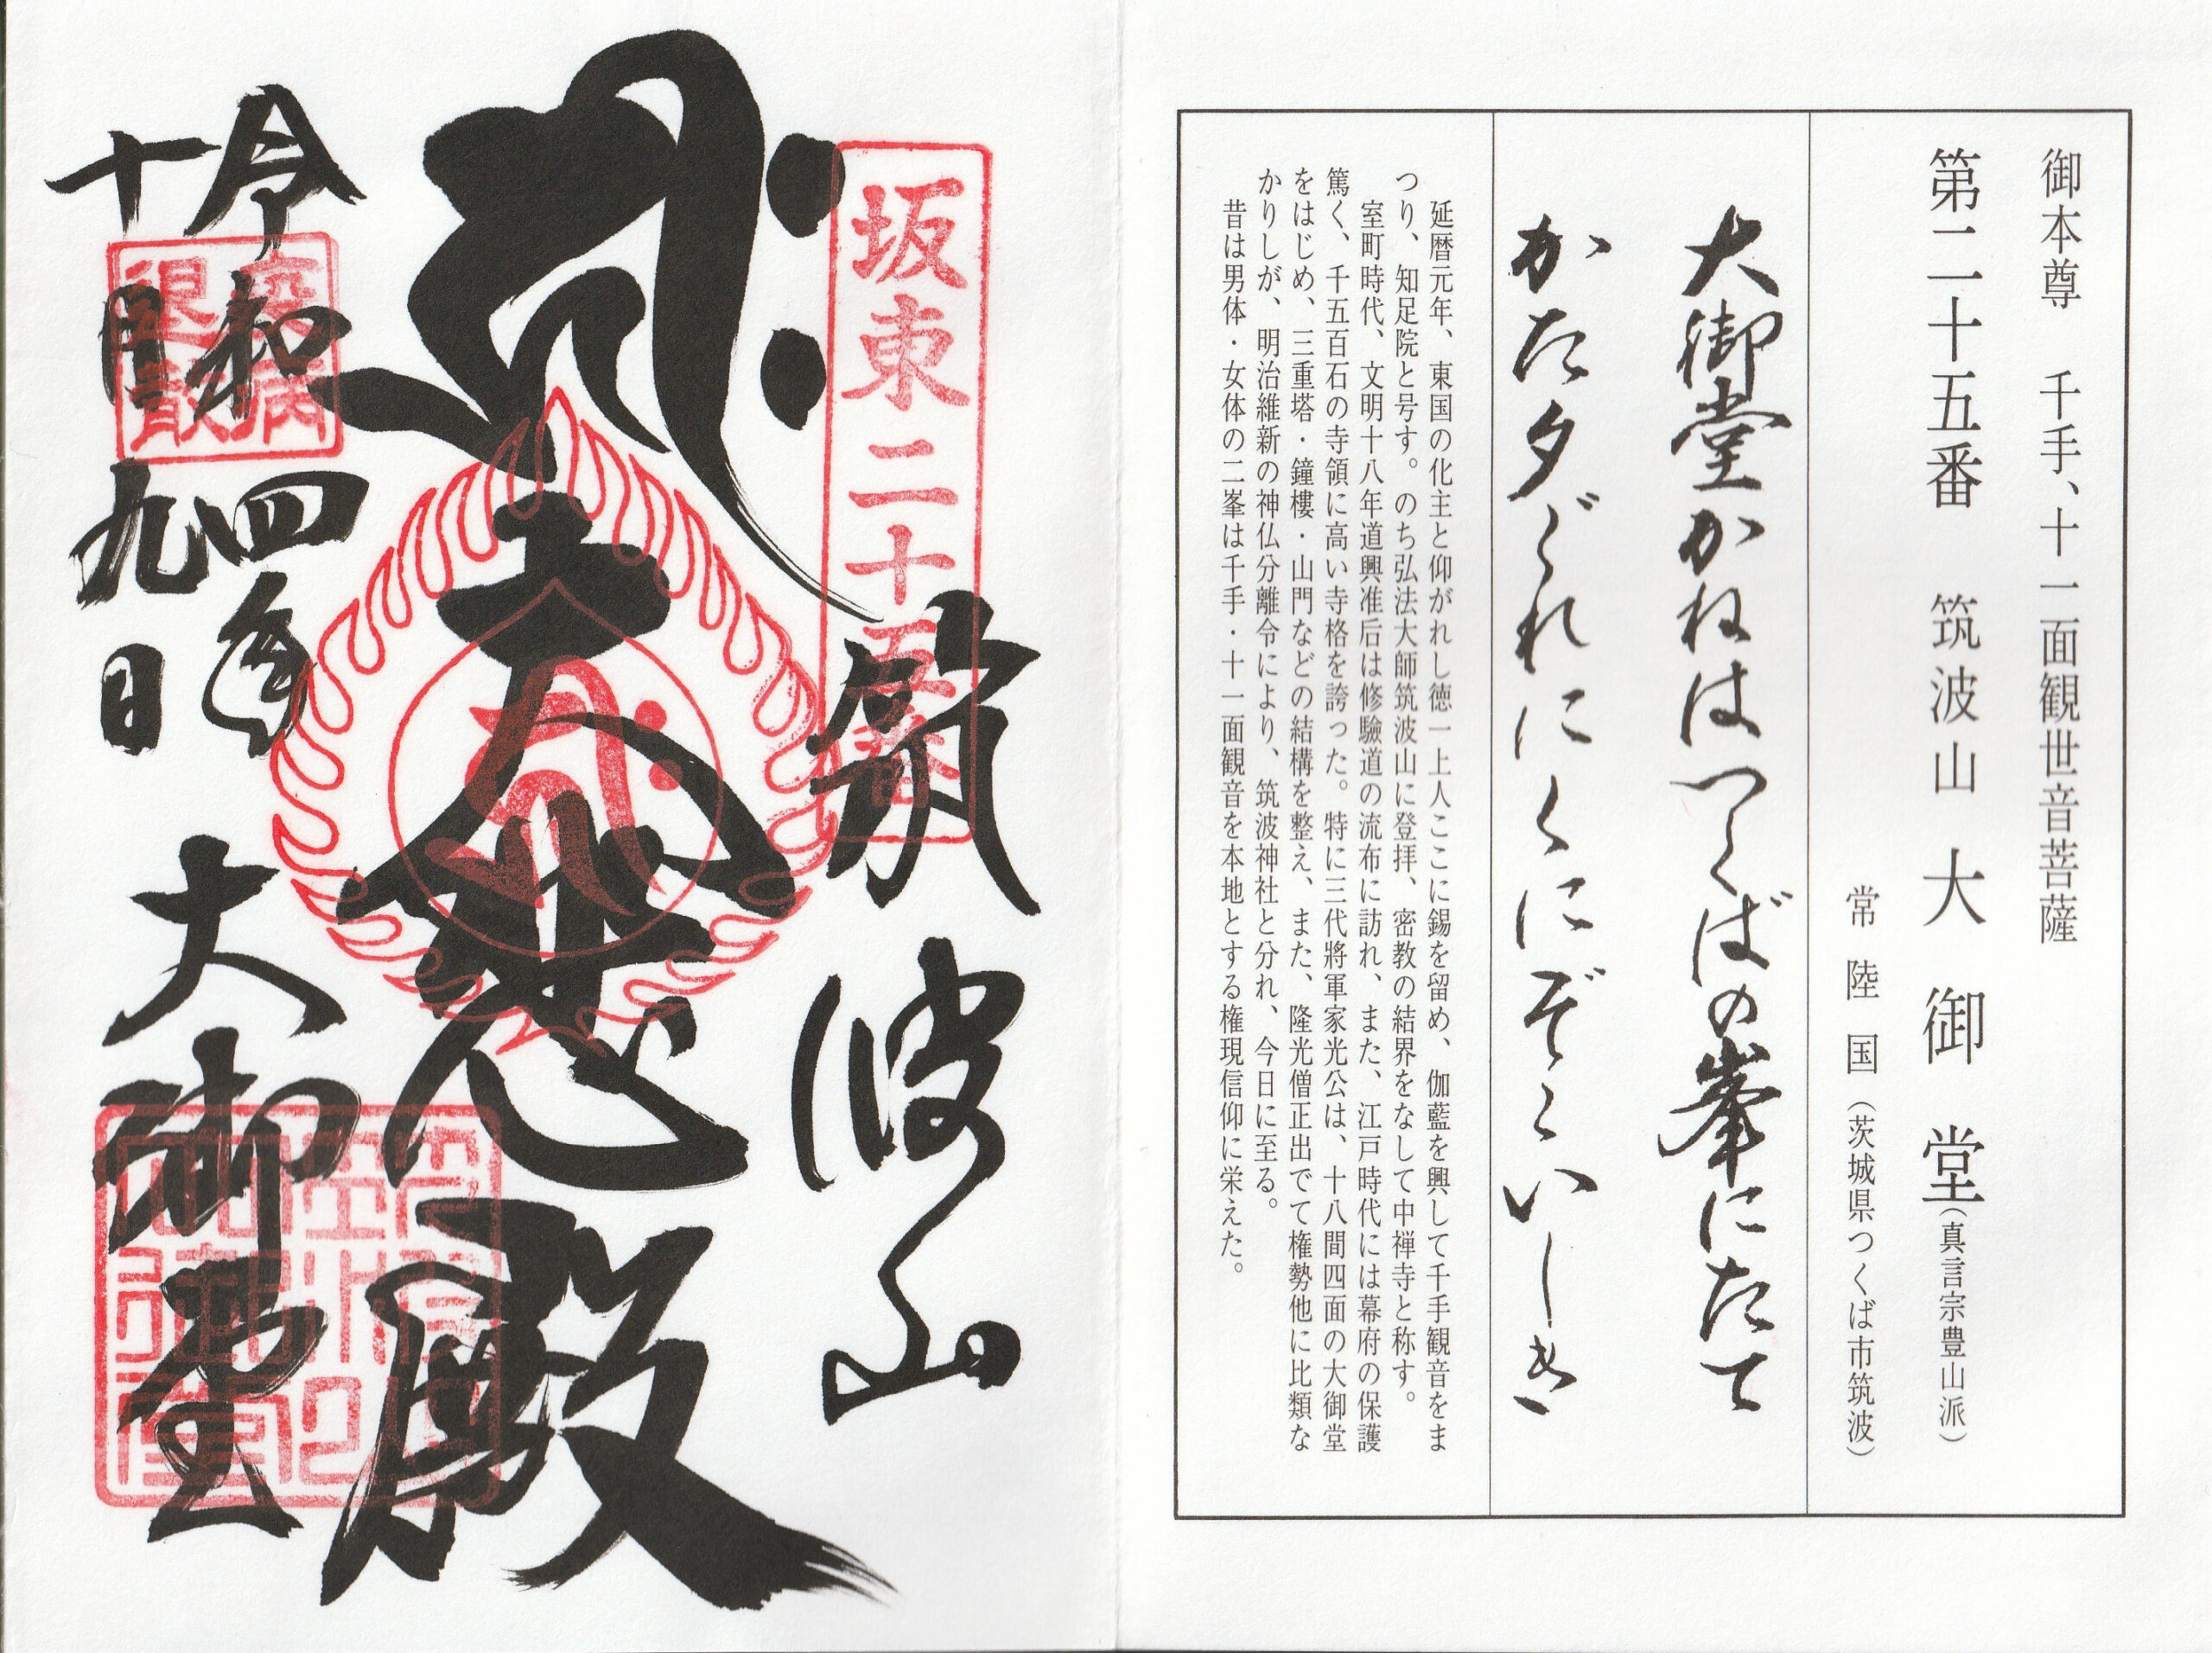 御本尊 千手、十一面観世音菩薩
第二十五番 筑波山 大御堂（真言宗豊山派）
常陸国（茨城県つくば市筑波）
大御堂かねはつくばの峯にたて
かた夕ぐれにくにぞこいしき
延暦元年、東国の化主と仰がれし徳一上人ここに錫を留め、伽藍を興して千手観音をま
つり、知足院と号す。のち弘法大師筑波山に登拝、密教の結界をなして中禅寺と称す。
室町時代、文明十八年道興准后は修驗道の流布に訪れ、また、江戸時代には幕府の保護
篤く、千五百石の寺領に高い寺格を誇った。特に三代將軍家光公は、十八間四面の大御堂
をはじめ、三重塔・鐘樓・山門などの結構を整え、また、隆光僧正出でて権勢他に比類な
かりしが、明治維新の神仏分離令により、筑波神社と分れ、今日に至る。
昔は男体・女体の二峯は千手・十一面観音を本地とする権現信仰に栄えた。
坂東二十五番
筑波山
大悲殿
令和四年
十月九日
大御堂
疫病
退散